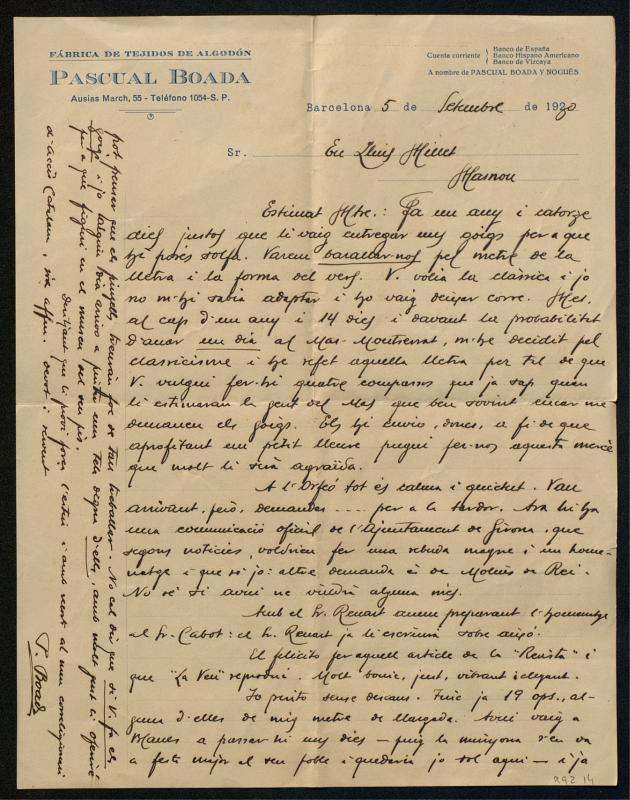 FÁBRICA DE TEJIDOS DE ALGODÓN
PASCUAL BOADA
Ausias March, 55 - Teléfono 1054-S. P.
Cuenta corriente
Banco de España
Banco Hispano Americano
Banco de Vizcaya
A nombre de PASCUAL BOADA Y NOGUÉS
Barcelona 5 de Setembre de 1920
Sr. En Lluis Millet
Masnou
Estimat Mtre.: Fa un any i catorze
dies justos que li vaig entregar uns goigs per a que
hi posés solfa. Varem barallar-nos pel metre de la
lletra i la forma del vers. V. volia la clàssica i jo
no m-hi sabia adaptar i ho vaig deixar corre. Mes,
al cap d'un any i 14 dies i davant la probabilitat
d'anar un dia al Mas-Montserrat, m-he decidit pel
classicisme i he refet aquella lletra per tal de que
V. vulgui fer-hi quatre compassos que ja sap quan
li estimaran la gent del Mas que ben sovint encar me
demanen els goigs. Els hi envio, doncs, a fi de que
aprofitant un petit lleure pugui fer-nos aquesta mercè
que molt li serà agraïda.
A l'Orfeó tot és calma i quietut. Van
arrivant, però, demandes .... per a la tardor. Ara hi ha
una comunicació oficial de l'Ajuntament de Girona, que
segons noticies, voldrien fer una rebuda magne i un home-
natge i que sé jo: altre demanda és de Molins de Rei.
No sé si avui ne vindrà alguna més.
Amb el Sr. Renart anem preparant l'homenatge
al Sr. Cabot: el Sr. Renart ja li escriurà sobre aixó.
El felicito per aquell article de la "Revista" i
que "La Veu" reprodui. Molt bonic, just, vibrant i elegant.
Jo pinto sense descans. Tinc ja 19 ops., al-
guna d'elles de mig metre de llargada. Avui vaig a
Blanes a passar-hi uns dies — puig la minyona s'en va
a festa major al seu poble i quedaria jo sol aqui — i ja
pot pensar que els pinzells hauràn de treballar. No cal dir que si V. fa els
goigs i jo algun dia arrivo a pintar una tela digna d'ells, amb molt gust li oferiré
per a que figuri en el museu del seu pis.
Desitjant que li provi força l'estiu i amb recort al meu correligionari
d'acció Catalana, seu affm. devot i servent
P. Boada
292 14